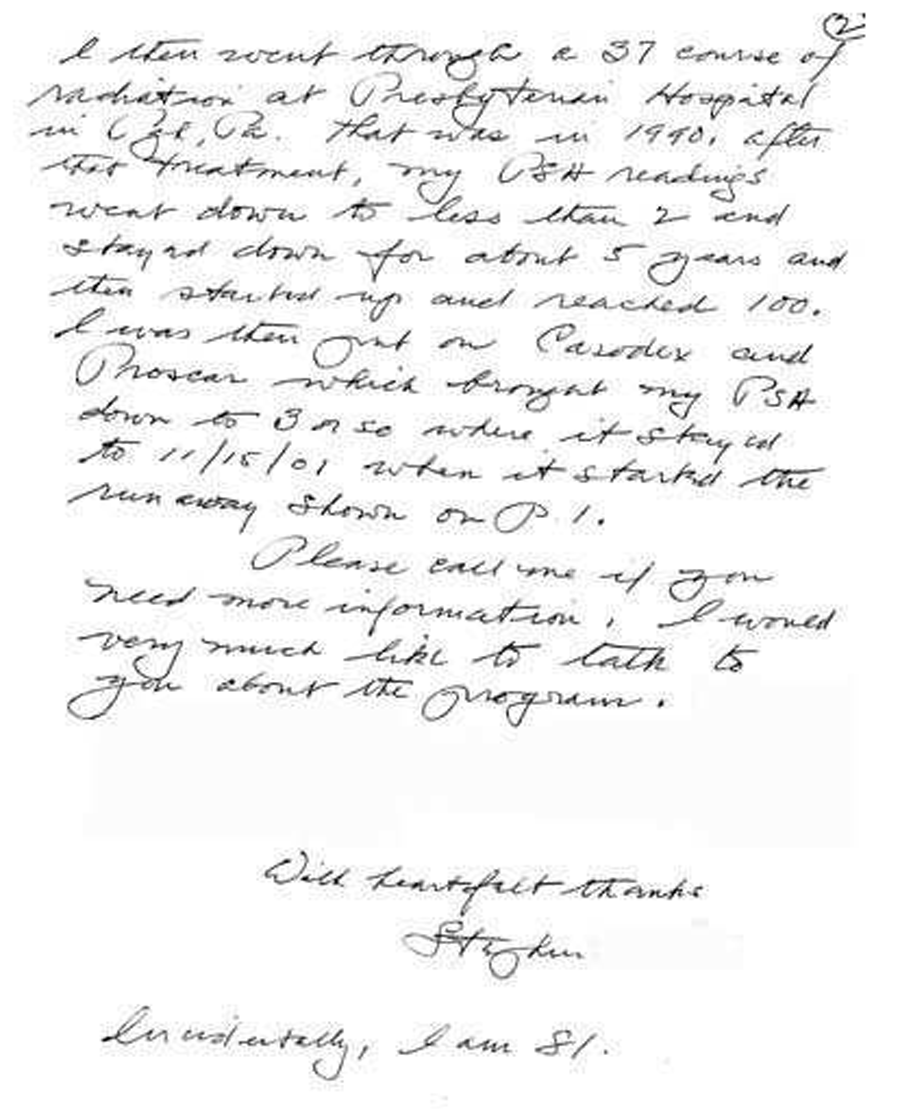 2
I then went through a 37 course of
radiation at Presbyterian Hospital
in Pgh, Pa. That was in 1990. After
that treatment, my PSA readings
went down to less than 2 and
stayed down for about 5 years and
then started up and reached 100.
I was then put on Casodex and
Proscar which brought my PSA
down to 3 or so where it stayed
to 11/15/01 when it started the
runaway shown on P. 1.
Please call me if you
need more information. I would
very much like to talk to
you about the program.
With heartfelt thanks
Stephen
Incidentally, I am 81.